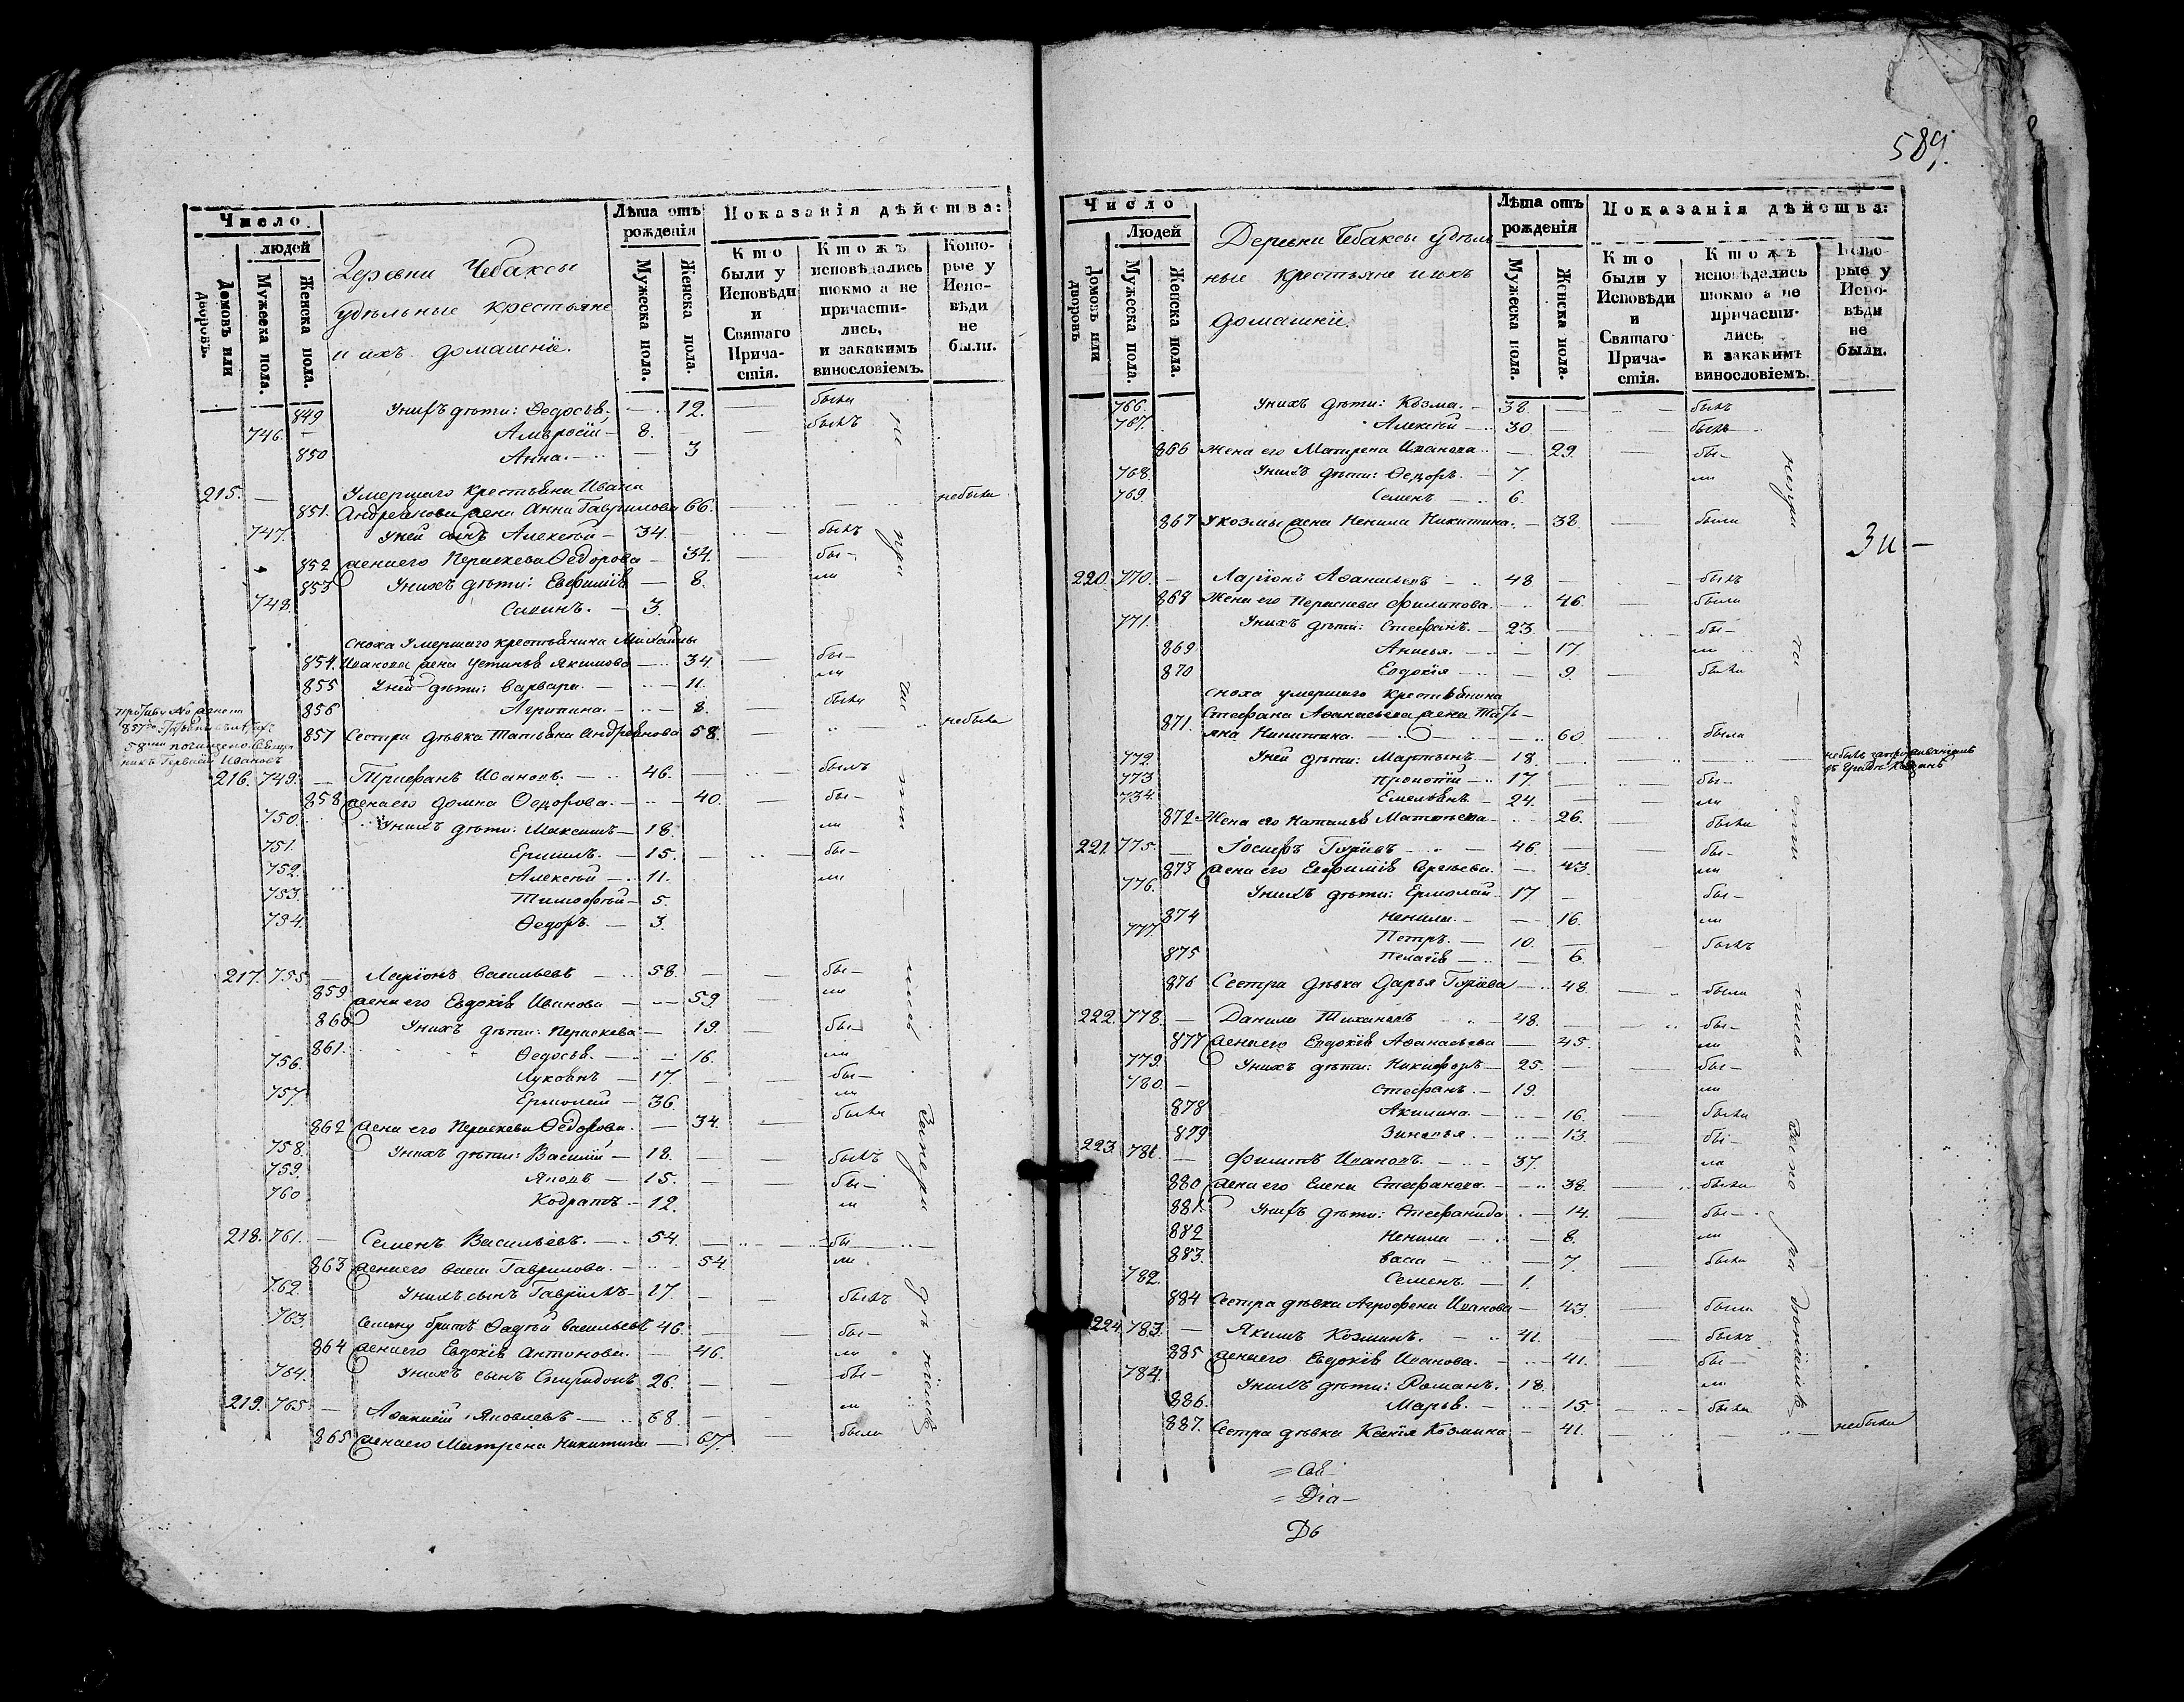 589.
Число
людей
Домовъ или дворовъ.
Мужеска пола.
Женска пола.
Деревни Чебаксы
удѣльные крестьяне
и ихъ домашніе.
Лѣта отъ рожденія
Мужеска пола.
Женска пола.
Показанія дѣйства:
Кто были у Исповѣди и Святаго Причастія.
Ктожъ исповѣдались токмо а не причастились, и закакимъ винословіемъ.
Которые у Исповѣди не были.
849 Унихъ дѣти: Ѳедосья. — 12. — были
746. — Амвросій — 8. — былъ
850 Анна. — — 3
215. — Умершаго крестьянина Ивана
851. Андреянова жена Анна Гаврилова 66. — небыла
747. Уней сынъ Алексѣй — 34. — былъ
852 жена его Параскева Ѳедорова — 34. — бы—
853 Унихъ дѣти: Евфимія — 8. ли
748. Савинъ. — 3.
сноха умершаго крестьянина Михайлы
854. Иванова жена Устинья Якимова — 34. — бы—
855 Уней дѣти: Варвара. — 11. ли
856 Агрипина. — 8. была
857 Сестра дѣвка Татьяна Андреянова 58. — небыла
216. 749. — Трифанъ Ивановъ. — 46. — былъ
858 жена его Домна Ѳедорова. — 40. — бы—
750. Унихъ дѣти: Максимъ — 18. ли
751. Ермилъ. — 15. — бы—
752. Алексѣй — 11. ли
753. Тимофѣй — 5.
754. Ѳедоръ. — 3.
217. 755. — Ларіонъ Васильевъ — 58. — бы—
859 жена его Евдокія Иванова — 59 ли
860 Унихъ дѣти: Параскева — 19. — бы—
861. Ѳедосья. — 16. ли
756. Лукоянъ — 17. — бы—
757. Ермолай — 36. ли
862 жена его Параскева Ѳедорова. — 34. — была
758. Унихъ дѣти: Василій — 18. — былъ
759. Яковъ — 15. — бы—
760 Кодратъ — 12. ли
218. 761. — Семенъ Васильевъ. — 54. — бы—
863 жена его Васса Гаврилова. — 54. ли
762. Унихъ сынъ Гаврилъ — 17. — былъ
763. Семену братъ Ѳадѣй Васильевъ 46. — бы—
864 жена его Евдокія Антонова. — 46. ли
764. Унихъ сынъ Спиридонъ 26. — бы—
219. 765. — Аѳанасій Яковлевъ — 68. — ли
865 жена его Матрена Никитина — 67. — была
Число
Людей
Домовъ или дворовъ
Мужеска пола.
Женска пола.
Деревни Чебаксы удѣль
ные крестьяне и ихъ
домашніе.
Лѣта отъ рожденія
Мужеска пола.
Женска пола.
Показанія дѣйства:
Кто были у Исповѣди и Святаго Причастія.
Ктожъ исповѣдались токмо а не причастились, и закакимъ винословіемъ.
Которые у Исповѣди не были.
766. Унихъ дѣти: Козма. — 38. — былъ
767. Алексѣй — 30. — былъ
866 Жена его Матрена Иванова — 29. — бы—
768. Унихъ дѣти: Ѳедоръ. — 7. ли
769. Семенъ — 6.
867 У козмы жена Ненила Никитина. — 38. — были
220. 770. — Ларіонъ Аѳанасьевъ — 48. — былъ
868 Жена его Параскева Филипова. — 46. — была
771. Унихъ дѣти: Стефанъ. — 23. — бы—
869 Анисья. — 17. ли
870 Евдокія — 9. — была
сноха умершаго крестьянина
871. Стефана Аѳанасьева жена Тать—
яна Никитина. — 60 — была
772. Уней дѣти: Мартынъ — 18. —
773 Прокопій — 17. — бы—
734. Емельянъ. — 24. — ли
872 Жена его Наталья Матвѣева — 26. — была
221. 775. — Іосифъ Гурьевъ — 46. — бы—
873 жена его Евфимія Сергѣева. — 43. ли
776. Унихъ дѣти: Ермолай. 17. — бы—
874 Ненила. — 16. ли
777. Петръ. — 10. — былъ
875 Пелагія — 6.
876 Сестра дѣвка Дарья Гурьева — 48. — была
222. 778. — Данило Тихановъ — 48. — бы—
877 жена его Евдокія Аѳанасьева — 45. ли
779. Унихъ дѣти: Никифоръ — 25. — бы—
780. — Стефанъ. — 19. ли
878 Акилина. — 16. — была
879 Зиновья. — 13. — бы—
223. 781. — Филипъ Ивановъ. — 37. ли
880 жена его Елена Стефанова. — 38. — была
881. Унихъ дѣти: Стефанида — 14. — бы—
882 Ненила — 8. ли
883. Васса — 7. была
782. Семенъ. — 1.
884 Сестра дѣвка Агрофена Иванова — 43 — была
224. 783. — Якимъ Козминъ. — 41. — былъ
885 жена его Евдокія Иванова. — 41. — бы—
784. Унихъ дѣти: Романъ. 18. ли
886. Марья. — 15. — была
887. Сестра дѣвка Ксенія Козмина — 41. — небыла